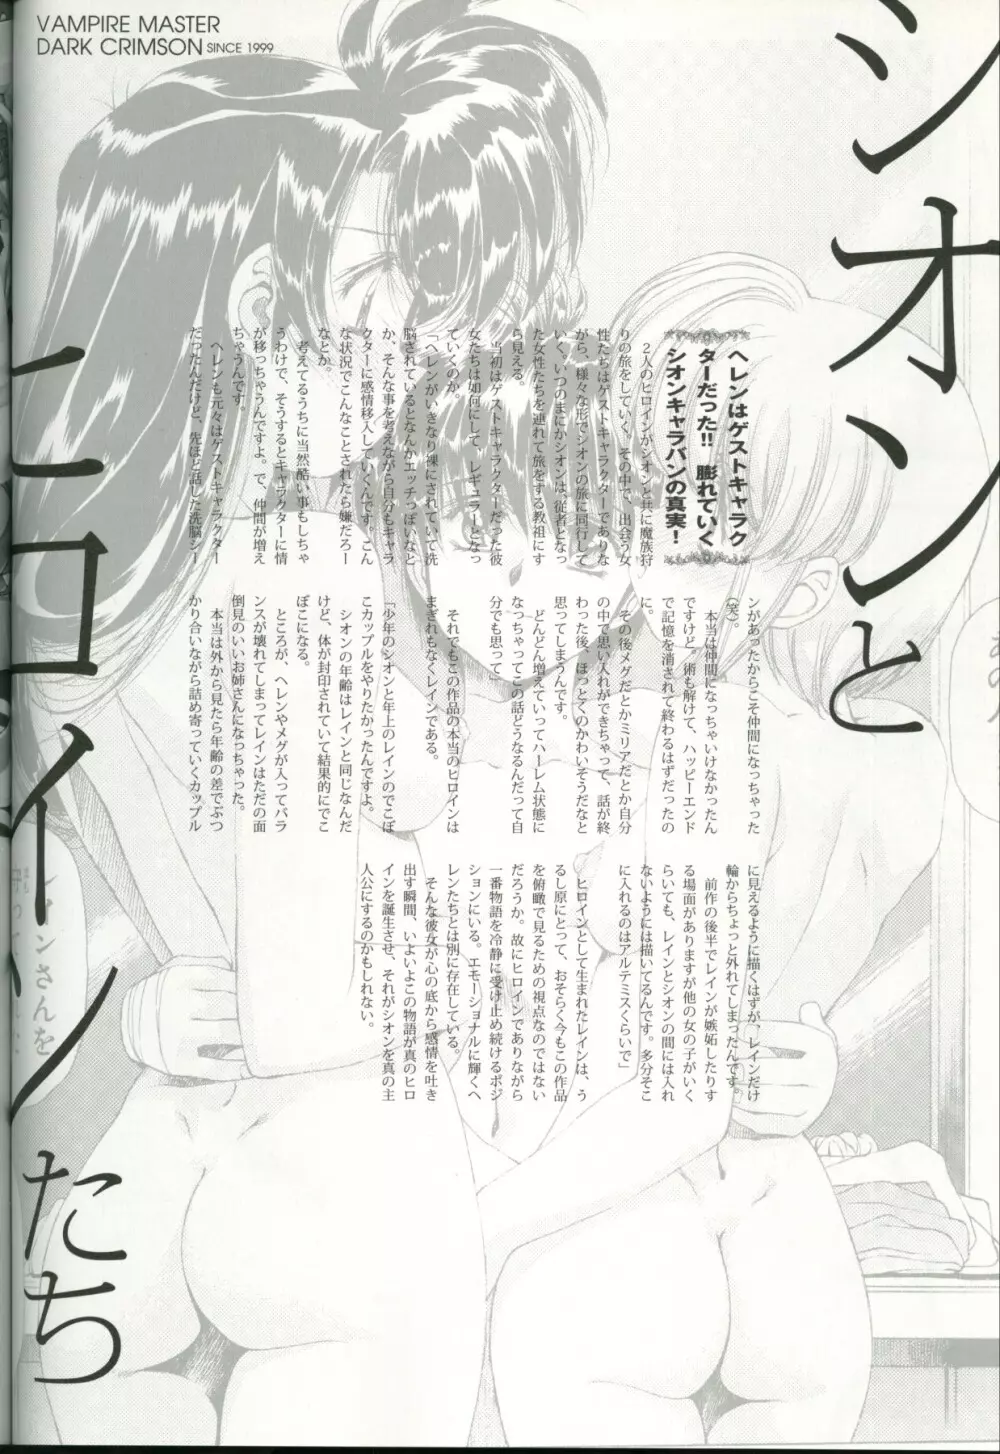 VAMPIRE MASTER
DARK CRIMSON SINCE 1999
シオンと
ヒロインたち
ヘレンはゲストキャラク
ターだった!! 膨れていく
シオンキャラバンの真実!
２人のヒロインがシオンと共に魔族狩
りの旅をしていく。その中で、出会う女
性たちはゲストキャラクターでありな
がら、様々な形でシオンの旅に同行して
いく。いつのまにかシオンは、従者となっ
た女性たちを連れて旅をする教祖にす
ら見える。
当初はゲストキャラクターだった彼
女たちは如何にして、レギュラーとなっ
ていくのか。
「ヘレンがいきなり裸にされていて洗
脳されているとなんかエッチっぽいなと
か、そんな事を考えながら自分もキャラ
クターに感情移入していくんです。こん
な状況でこんなことされたら嫌だろー
なとか。
考えてるうちに当然酷い事もしちゃ
うわけで、そうするとキャラクターに情
が移っちゃうんですよ。で、仲間が増え
ちゃうんです。
ヘレンも元々はゲストキャラクター
だったんだけど、先ほど話した洗脳シー
ンがあったからこそ仲間になっちゃった
(笑)。
本当は仲間になっちゃいけなかったん
ですけど。術も解けて、ハッピーエンド
で記憶を消されて終わるはずだったの
に。
その後メグだとかミリアだとか自分
の中で思い入れができちゃって、話が終
わった後、ほっとくのかわいそうだなと
思ってしまうんです。
どんどん増えていってハーレム状態に
なっちゃってこの話どうなるんだって自
分でも思って」
それでもこの作品の本当のヒロインは
まぎれもなくレインである。
「少年のシオンと年上のレインのでこぼ
こカップルをやりたかったんですよ。
シオンの年齢はレインと同じなんだ
けど、体が封印されていて結果的にでこ
ぼこになる。
ところが、ヘレンやメグが入ってバラ
ンスが壊れてしまってレインはただの面
倒見のいいお姉さんになっちゃった。
本当は外から見たら年齢の差でぶつ
かり合いながら詰め寄っていくカップル
に見えるように描くはずが、レインだけ
輪からちょっと外れてしまったんです。
前作の後半でレインが嫉妬したりす
る場面がありますが他の女の子がいく
らいても、レインとシオンの間には入れ
ないようには描いてるんです。多分そこ
に入れるのはアルテミスくらいで」
ヒロインとして生まれたレインは、う
るし原にとって、おそらく今もこの作品
を俯瞰で見るための視点なのではない
だろうか。故にヒロインでありながら
一番物語を冷静に受け止め続けるポジ
ションにいる。エモーショナルに輝くヘ
レンたちとは別に存在している。
そんな彼女が心の底から感情を吐き
出す瞬間、いよいよこの物語が真のヒロ
インを誕生させ、それがシオンを真の主
人公にするのかもしれない。
レインさんを